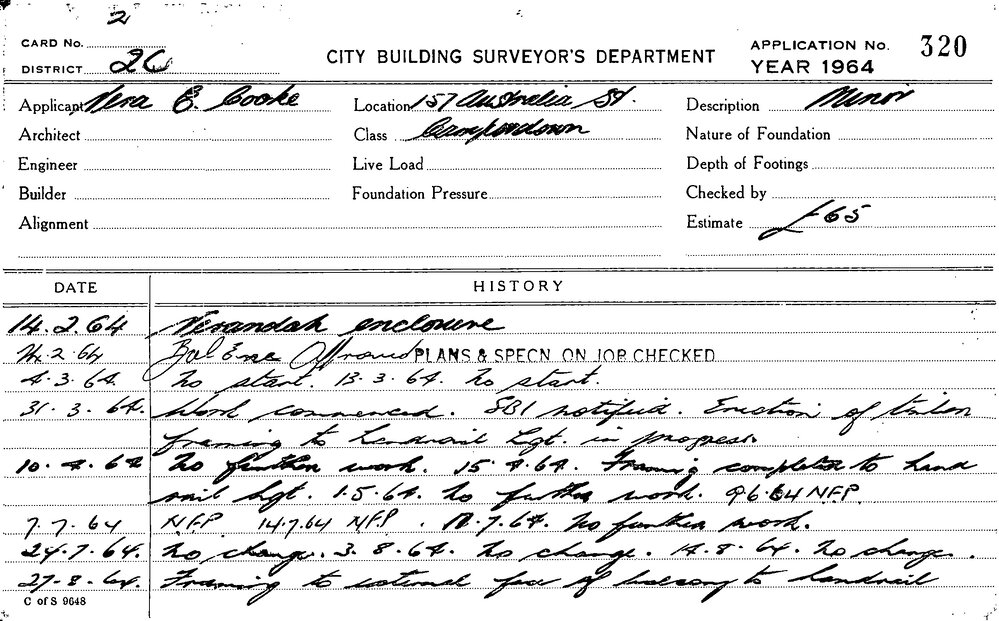 2
CARD No.
DISTRICT 2C
CITY BUILDING SURVEYOR'S DEPARTMENT
APPLICATION No. 320
YEAR 1964
Applicant Vera E. Cooke
Location 157 Australia St.
Description Minor
Architect
Class Camperdown
Nature of Foundation
Engineer
Live Load
Depth of Footings
Builder
Foundation Pressure
Checked by
Alignment
Estimate £65
DATE HISTORY
14.2.64 Verandah enclosure
24.2.64 Bal Enc Approved PLANS & SPECN ON JOB CHECKED
4.3.64. No start. 13.3.64. No start.
31.3.64. Work commenced. SBI notified. Erection of timber
framing to handrail hgt. in progress.
10.4.64 No further work. 15.4.64. Framing completed to hand
rail hgt. 1.5.64. No further work. 9.6.64 NFP.
7.7.64 NFP 14.7.64 NFP. 17.7.64. No further work.
24.7.64. No change. 3.8.64. No change. 14.8.64. No change.
27.8.64. Framing to external face of balcony to handrail
C of S 9648